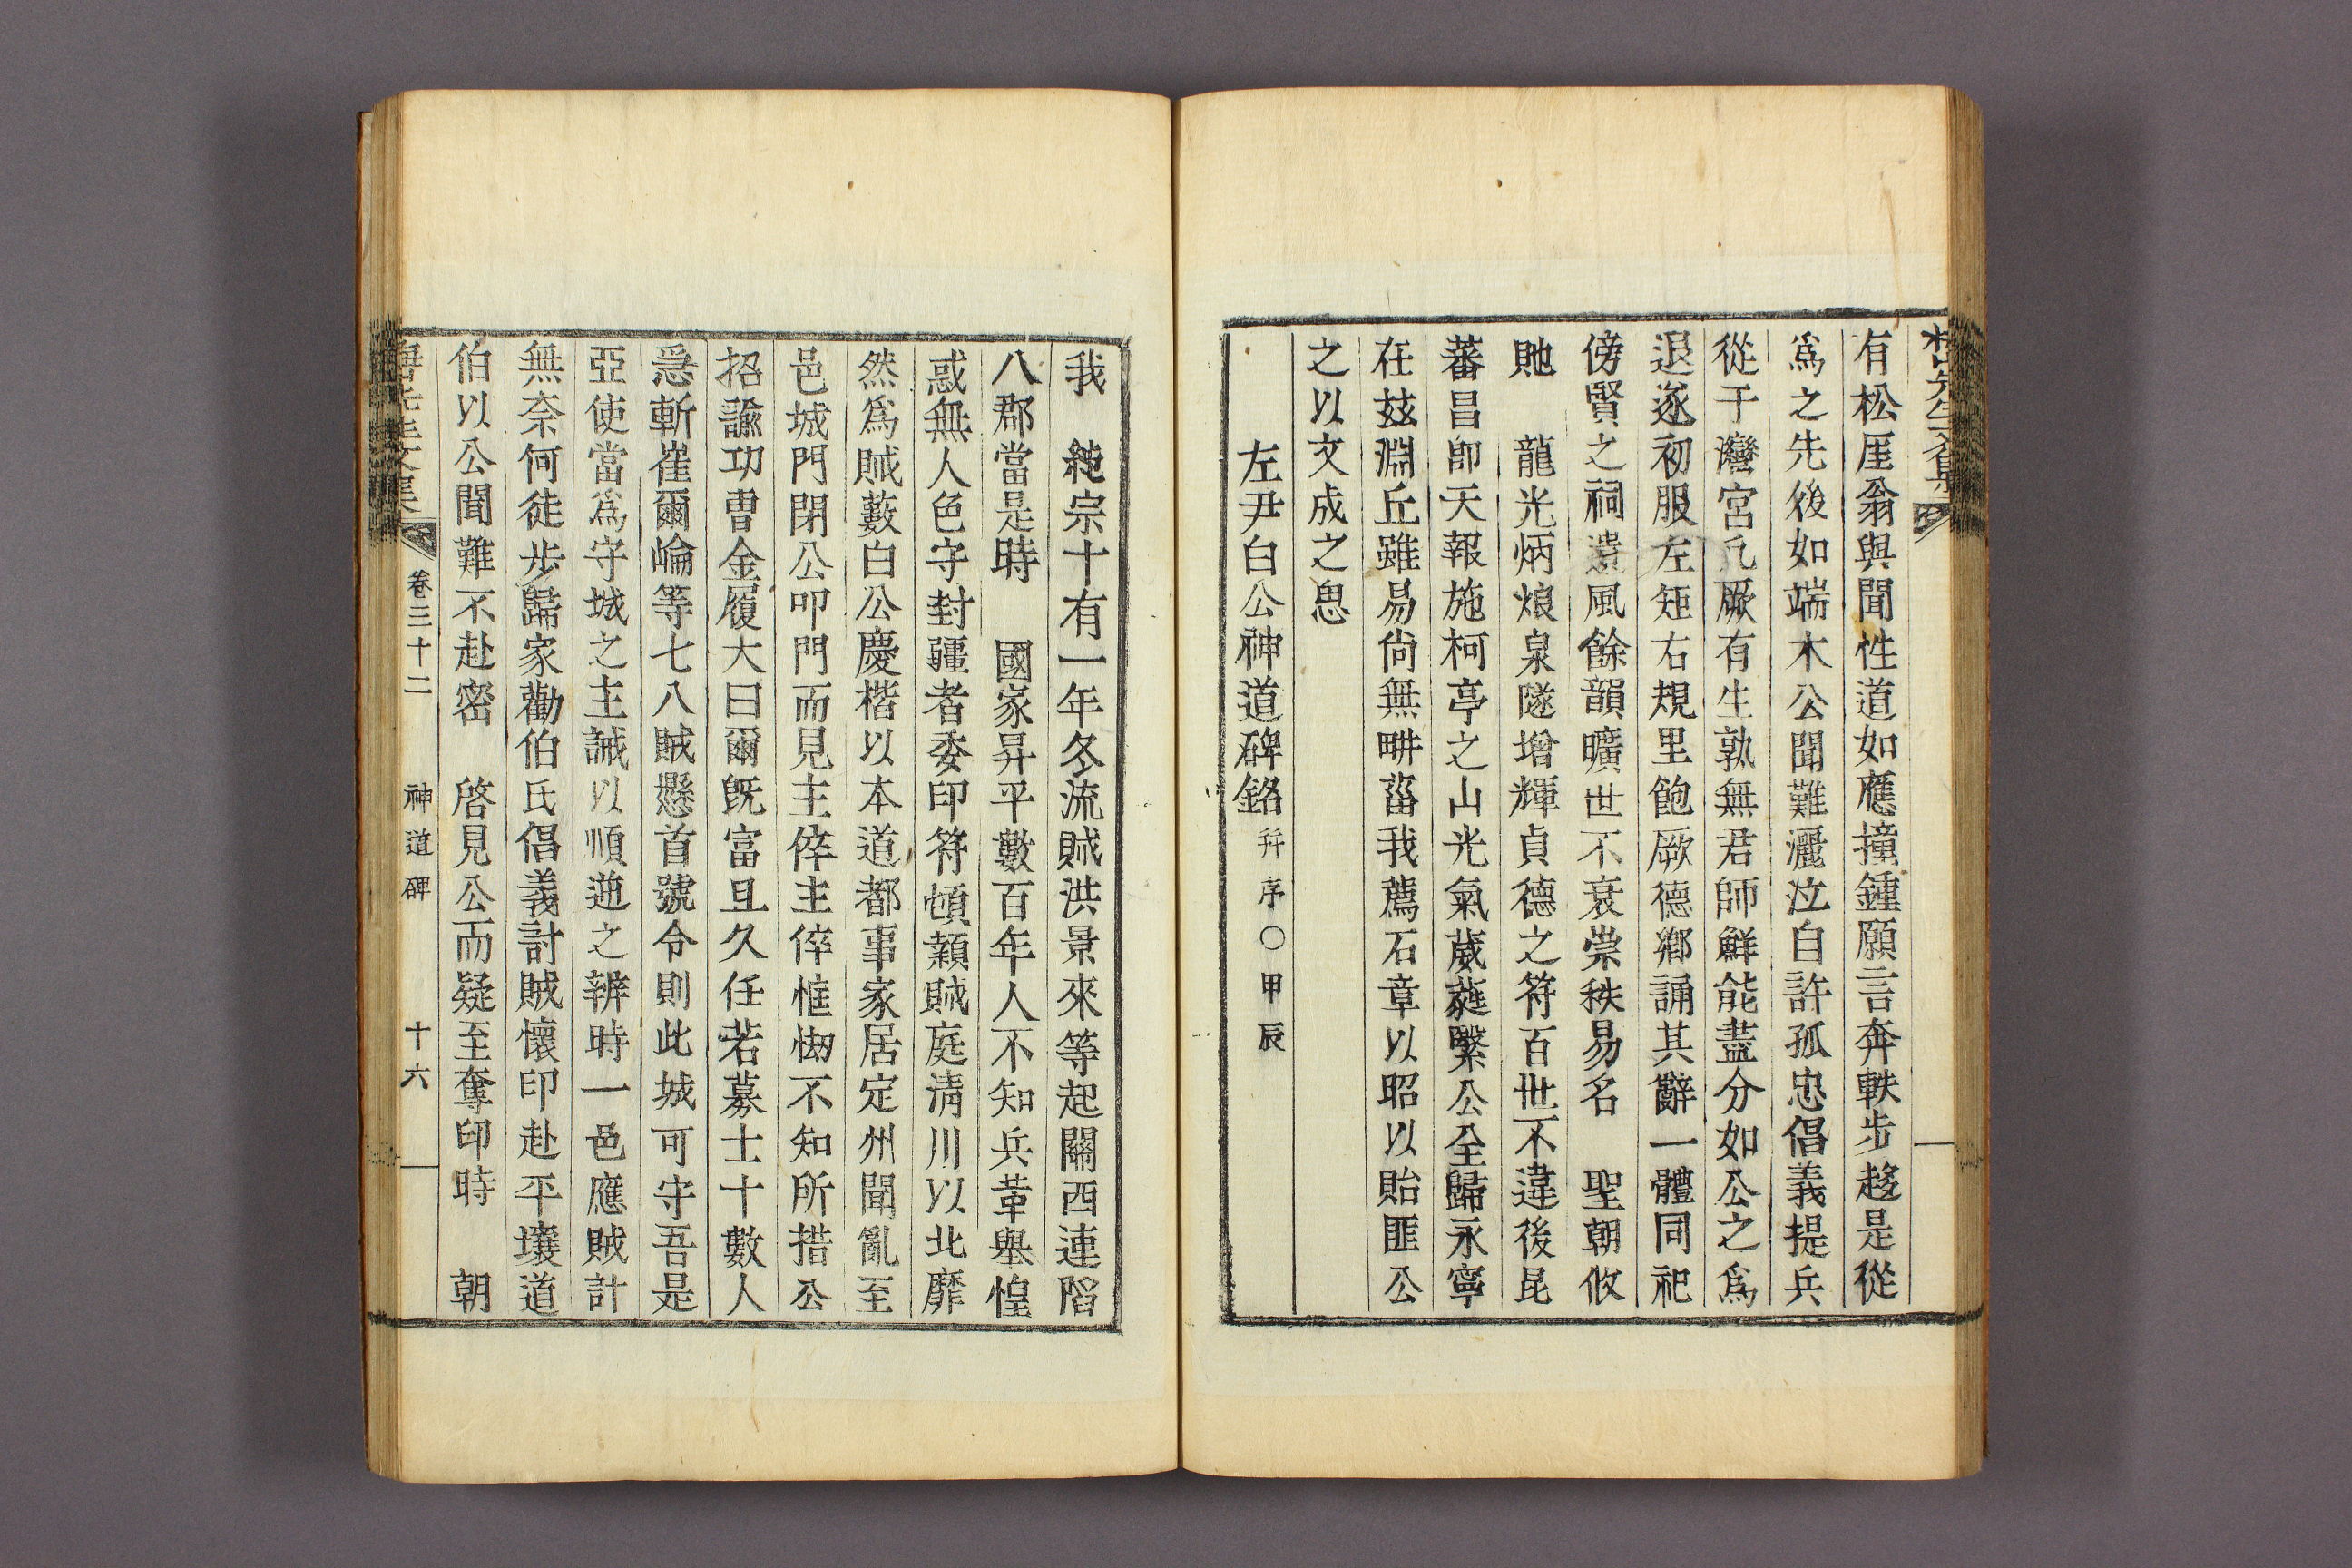 有松厓翁與聞性道如應撞鍾願言奔軼步趍是從
爲之先後如端木公聞難灑泣自許孤忠倡義提兵
從于灣宮凡厥有生孰無君師鮮能盡分如公之爲
退逐初服左矩右規里飽厥德鄕誦其辭一體同祀
傍賢之祠遺風餘韻曠世不衰崇秩易名　聖朝攸
貤　龍光炳烺泉隧增輝貞德之符百世不違後昆
蕃昌卽天報施柯亭之山光氣葳蕤繄公全歸永寧
在玆淵丘雖易尙無畊畓我薦石章以昭以貽匪公
之以文成之思
左尹白公神道碑銘 幷序○甲辰
我　純宗十有一年冬流賊洪景來等起關西連陷
八郡當是時　國家昇平數百年人不知兵革擧惶
惑無人色守封疆者委印符頓顙賊庭淸川以北靡
然爲賊藪白公慶楷以本道都事家居定州聞亂至
邑城門閉公叩門而見主倅主倅恇㤼不知所措公
招諭功曹金履大曰爾旣富且久任若募士十數人
急斬崔爾崘等七八賊懸首號令則此城可守吾是
亞使當爲守城之主誡以順逆之辨時一邑應賊計
無奈何徒步歸家勸伯氏倡義討賊懷印赴平壤道
伯以公聞難不赴密　啓見公而疑至奪印時　朝
卷三十二　神道碑　十六